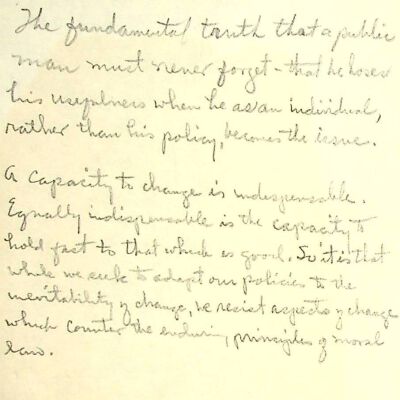 The fundamental truth that a public
man must never forget - that he loses
his usefulness when he as an individual,
rather than his policy, becomes the issue.
A capacity to change is indespensable.
Equally indispensable is the capacity to
hold fast to that which is good. So it is that
while we seek to adapt our policies to the
inevitability of change, we resist aspects of change
which counter the enduring principles of moral
law.